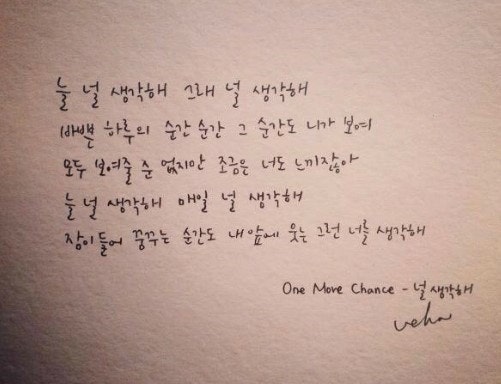 늘 널 생각해 그래 널 생각해
바쁜 하루의 순간순간 그 순간도 니가 보여
모두 보여줄 순 없지만 조금은 너도 느끼잖아
늘 널 생각해 매일 널 생각해
잠이들어 꿈꾸는 순간도 내 앞에 웃는 그런 너를 생각해
One More Chance - 널 생각해